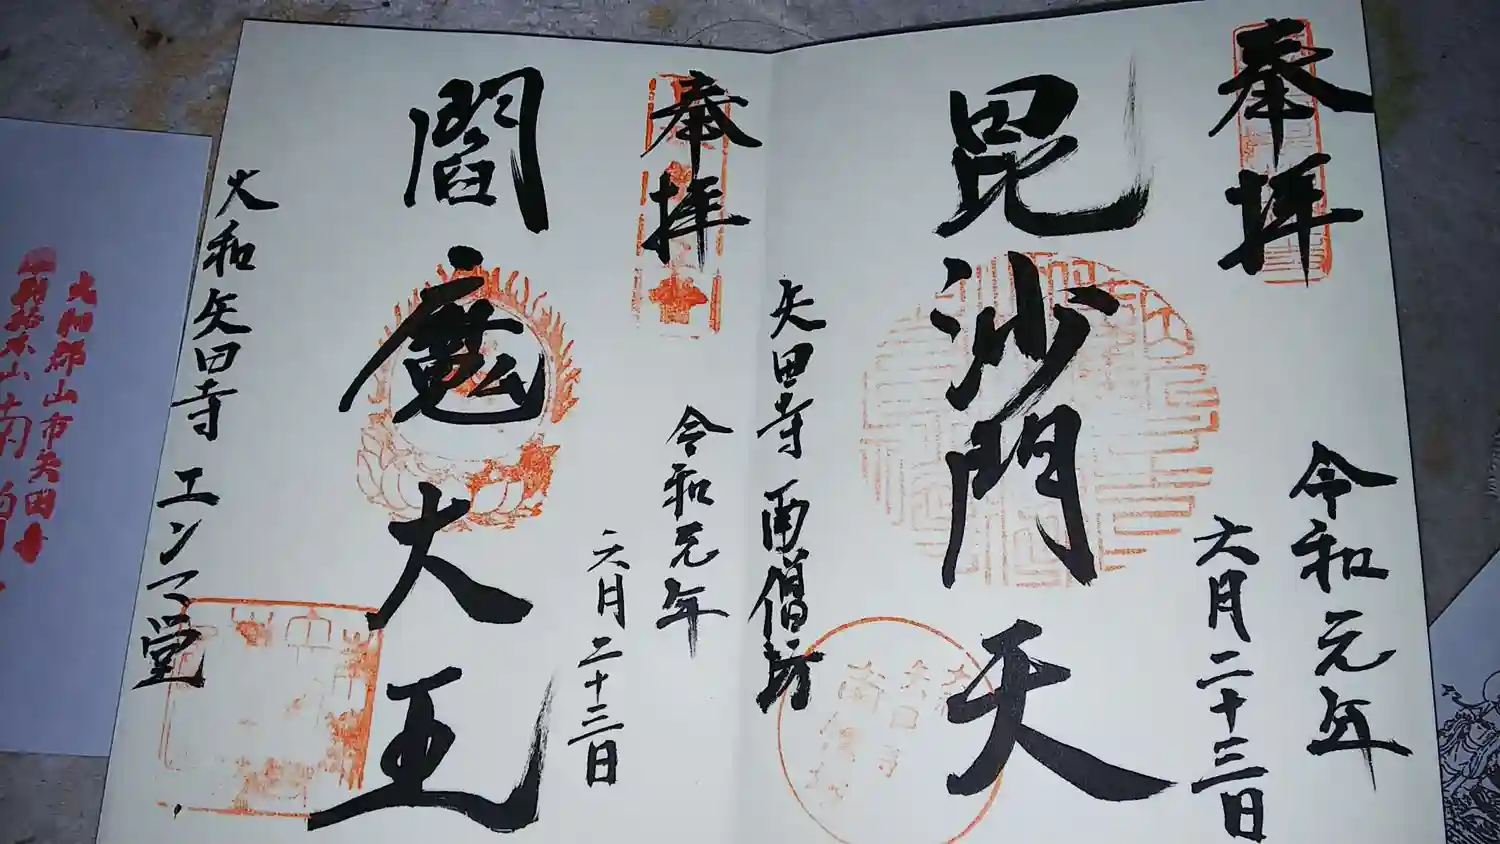 奉拝
令和元年
六月二十三日
毘沙門天
矢田寺 南僧坊
奉拝
令和元年
六月二十三日
閻魔大王
大和矢田寺 エンマ堂
大和郡山市矢田寺